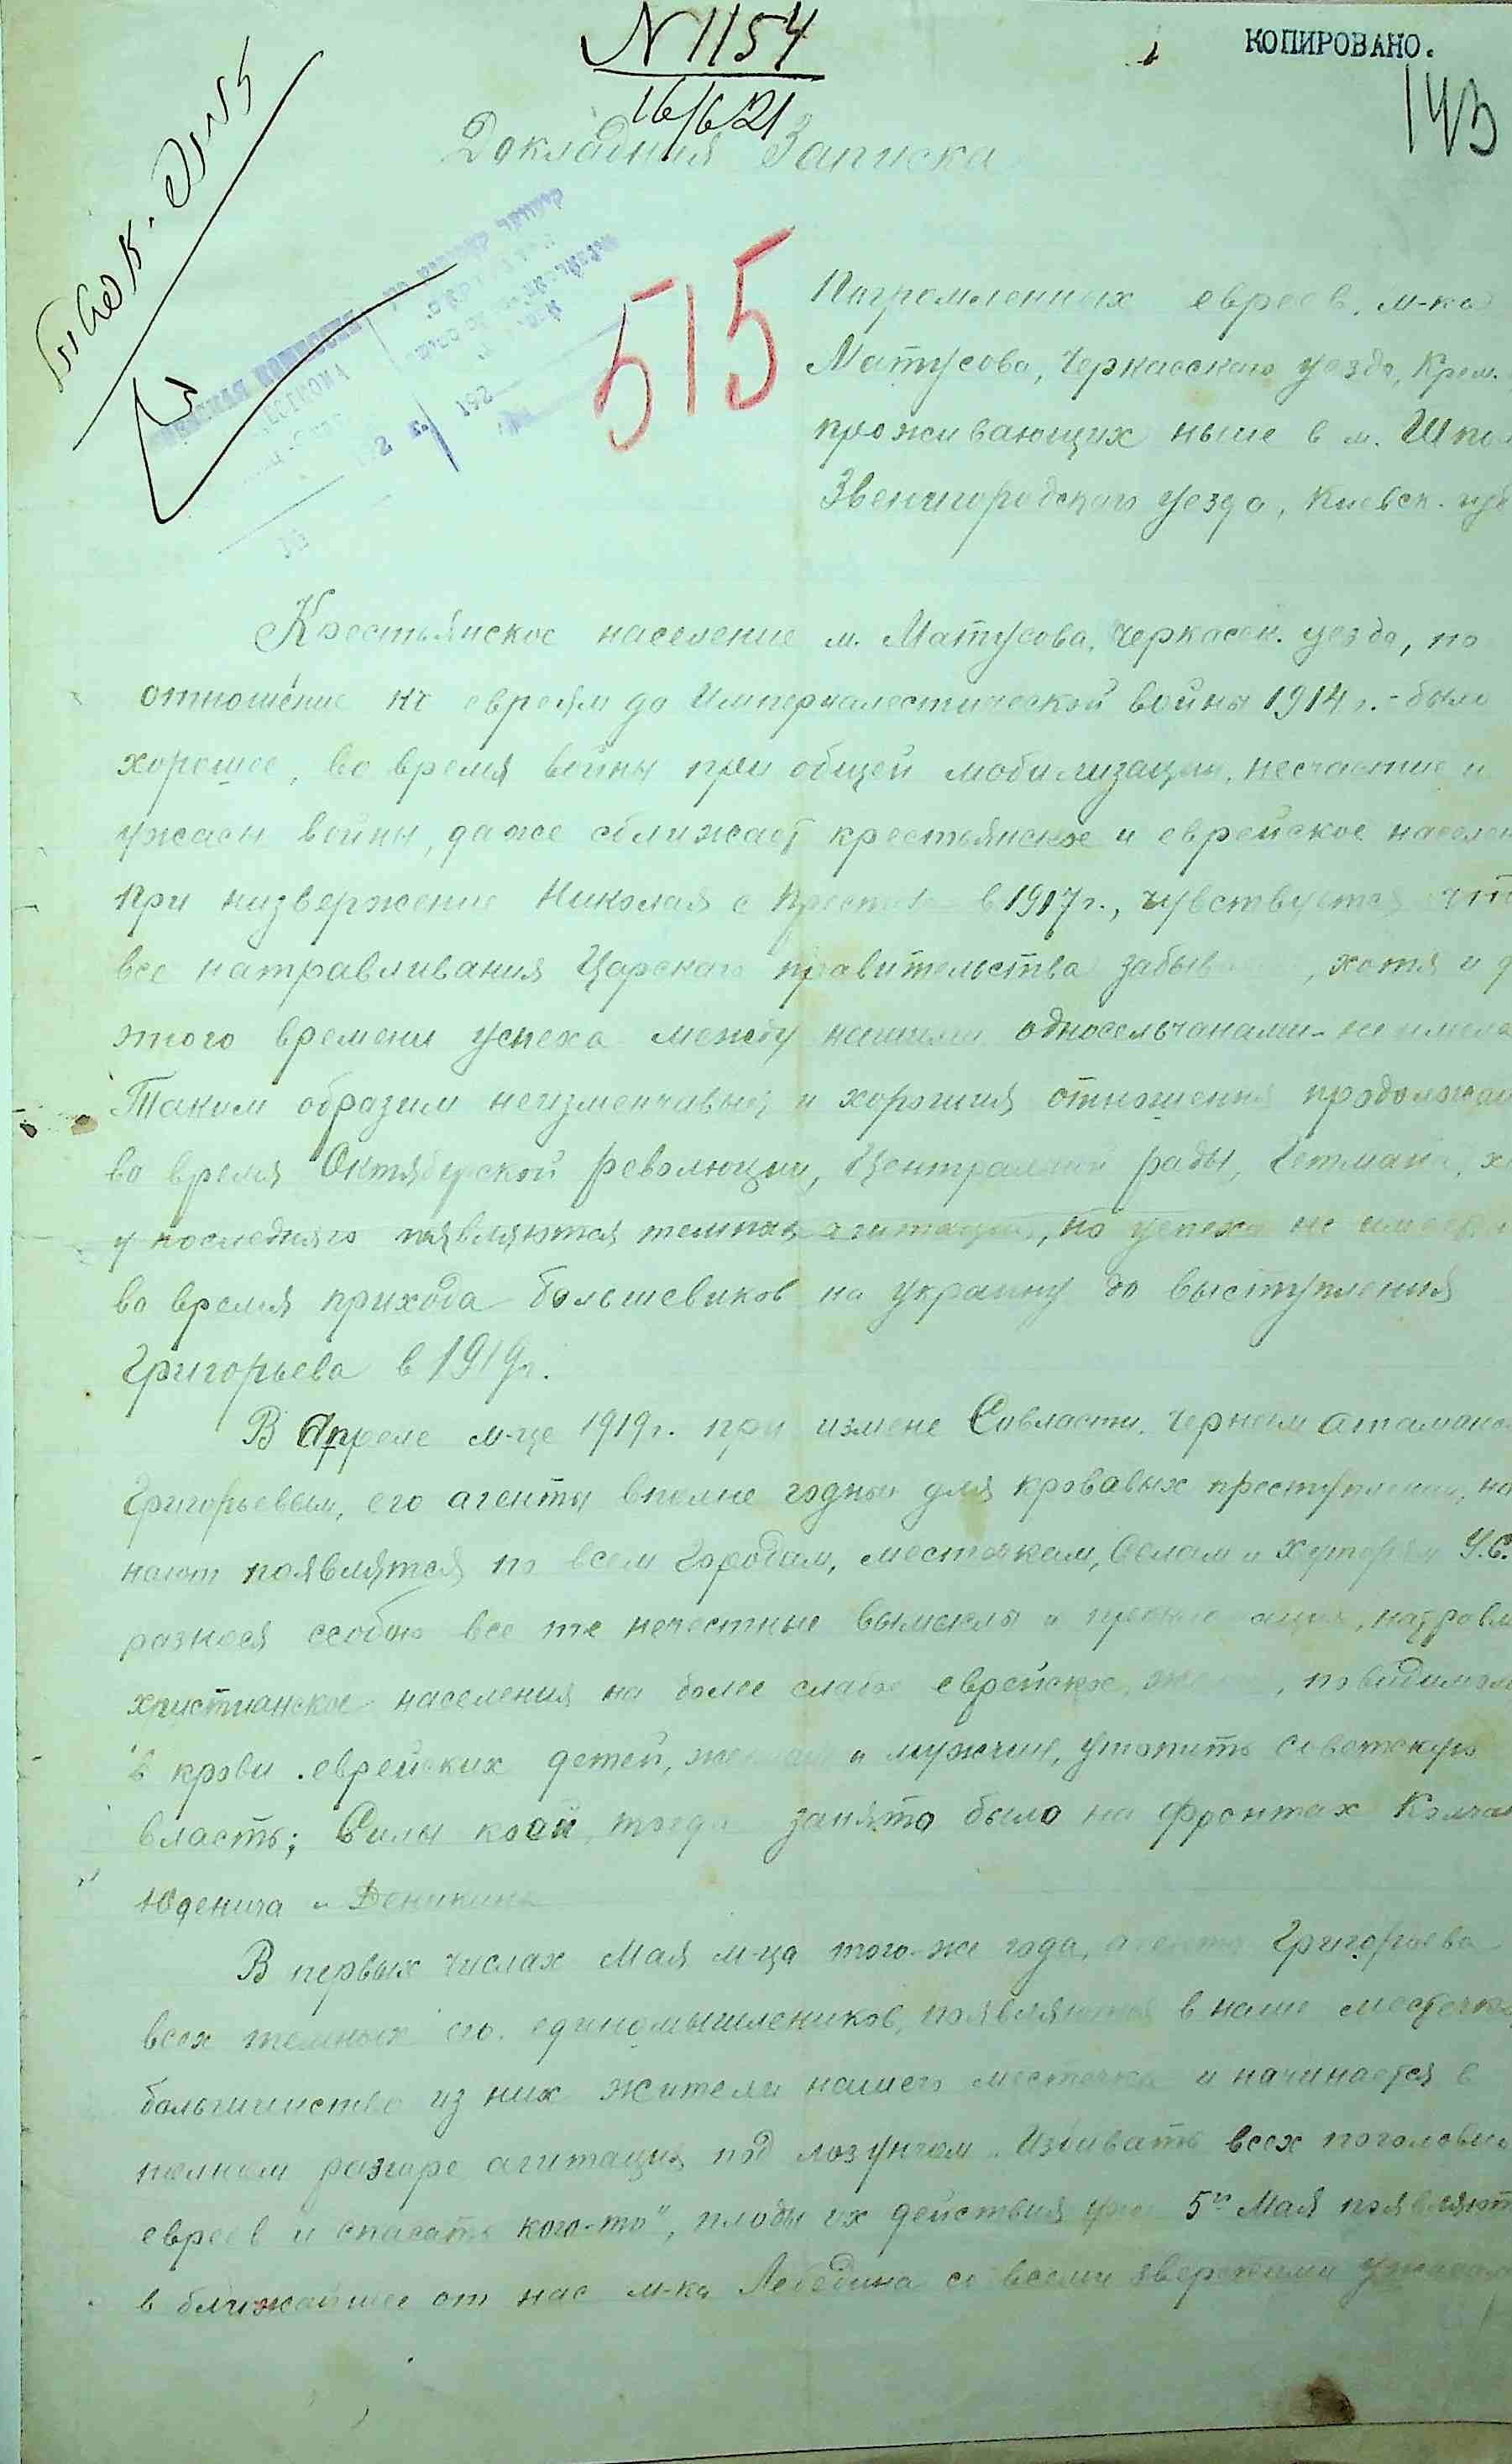 N 1154
16/6 21
КОПИРОВАНО.
143
Докладная Записка
515
Погромленных евреев, м-ка
Матусова, Черкасскаго уезда, Крем.
проживающих ныне в м. Шпол
Звенигородскаго уезда, Киевск. губ
Крестьянское население м. Матусова, Черкасск. уезда, по
отношение к евреям до Империалестической войны 1914 г. - было
хорошее, во время войны при общей мобилизации, несчастие и
ужасы войны, даже сближает крестьянское и еврейское населен
При низвержение Николая с Престола в 1917 г., чувствуется что
все натравливания Царскаго правительства забыв , хотя и д
этого времени успеха между нашими односельчанами - не имела
Таким образом неизменчавыя и хорошия отношения продолжал
во время Октябрской революции, Центральной рады, Гетмана, х
у последняго появляются темныя агитации, но успеха не имеет
во время прихода большевиков на Украину до выступления
Григорьева в 1919 г.
В Апреле м-це 1919 г. при измене Совласти, Черным атаманом
Григорьевым, его агенты вполне годные для кровавых преступлении, на
нают появлятся по всем Городам, местечкам, Селам и Хуторам У.С.
разнося ссобою все те нечестные вымыслы и , натравл
христианское населения на более слабое еврейское, , повидимом
в крови еврейких детей, женщин и мужчин, утопить советскую
власть; Силы коей, тогда занято было на фронтах Колчак
Юденича и Деникина
В первых числах Мая м-ца того-же года, агенты Григорьева
всех темных его единомышлеников, появляются в наше местечко
большинство из них жители нашего местечка и начинается в
полном разгаре агитация под лозунгом „Избивать всех поголовно
евреев и спасать кого-то", плоды их действия уже 5го Мая появляют
в ближайшее от нас м-ка Лебедина со всеми зверскими ужасам